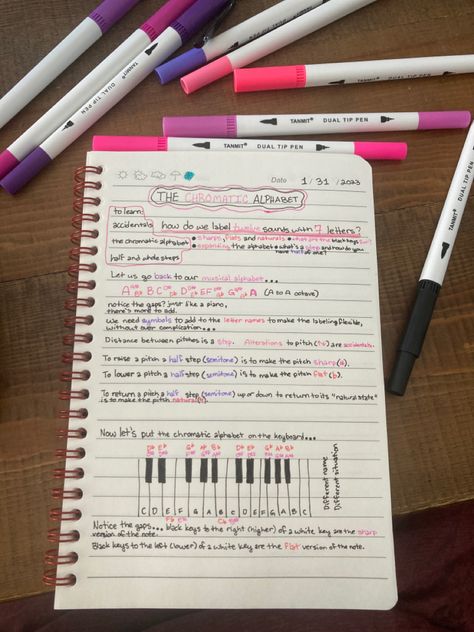 TANMIT DUAL TIP PEN
TANMIT DUAL TIP PEN
TANMIT DUAL TIP PEN
TANMIT DUAL TIP PEN
Date 1/31/2023
THE CHROMATIC ALPHABET
to learn:
accidentals
the chromatic alphabet
half and whole steps
how do we label twelve sounds with 7 letters?
• sharps, flats and naturals • what are the black keys for?
• expanding the alphabet • what's a step and how do you have half of one?
Let us go back to our musical alphabet...
(A to A octave)
notice the gaps? just like a piano,
there's more to add.
We need symbols to add to the letter names to make the labeling flexible,
without over complication...
Distance between pitches is a step. Alterations to pitch (hs) are accidentals.
To raise a pitch a half step (semitone) is to make the pitch sharp(#).
To lower a pitch a half step (semitone) is to make the pitch flat (b).
To return a pitch a half step (semitone) up or down to return to its "natural state"
is to make the pitch natural(♮).
Now let's put the chromatic alphabet on the keyboard...
Db Eb Gb Ab Bb Db Eb Gb Ab Bb
C D E F G A B C D E F G A B C
Different name
Different situation
Notice the gaps... black keys to the right (higher) of a white key are the sharp
version of the note.
Black keys to the left (lower) of a white key are the flat version of the note.